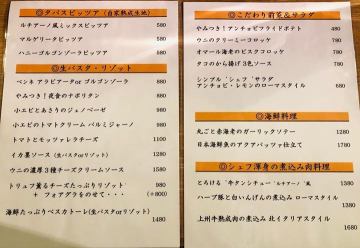 ◎タパスピッツァ（自家熟成生地）
ルチアーノ風ミックスピッツァ 880
マルゲリータピッツァ 780
ハニーゴルゴンゾーラピッツァ 880
◎生パスタ・リゾット
ペンネ アラビアータorゴルゴンゾーラ 980
やみつき！夜食のナポリタン 980
小エビとあさりのジェノベーゼ 980
小エビのトマトクリーム パルミジャーノ 980
トマトとモッツァレラチーズ 1180
イカ墨ソース（生パスタorリゾット） 1280
ウニの濃厚3種チーズクリームソース 1380
トリュフ薫るチーズたっぷりリゾット 980
+ フォアグラをのせて・・・ (+800)
海鮮たっぷりペスカトーレ(生パスタorリゾット) 1480
◎こだわり前菜&サラダ
やみつき！アンチョビフライドポテト 580
ウニのクリーミーコロッケ 580
オマール海老のビスクコロッケ 580
タコのから揚げ3色ソース 580
シンプル“シーザーサラダ
アンチョビ・レモンのローマスタイル 680
◎海鮮料理
丸ごと赤海老のガーリックソテー 1280
日本海鮮魚のアクアパッツァ仕立て 1380
◎シェフ渾身の煮込み肉料理
とろける“牛タンシチュー”ルチアーノ風 1380
ハーブ豚と白いんげんの煮込み ローマスタイル 1380
上州牛熟成肉の煮込み 北イタリアスタイル 1680